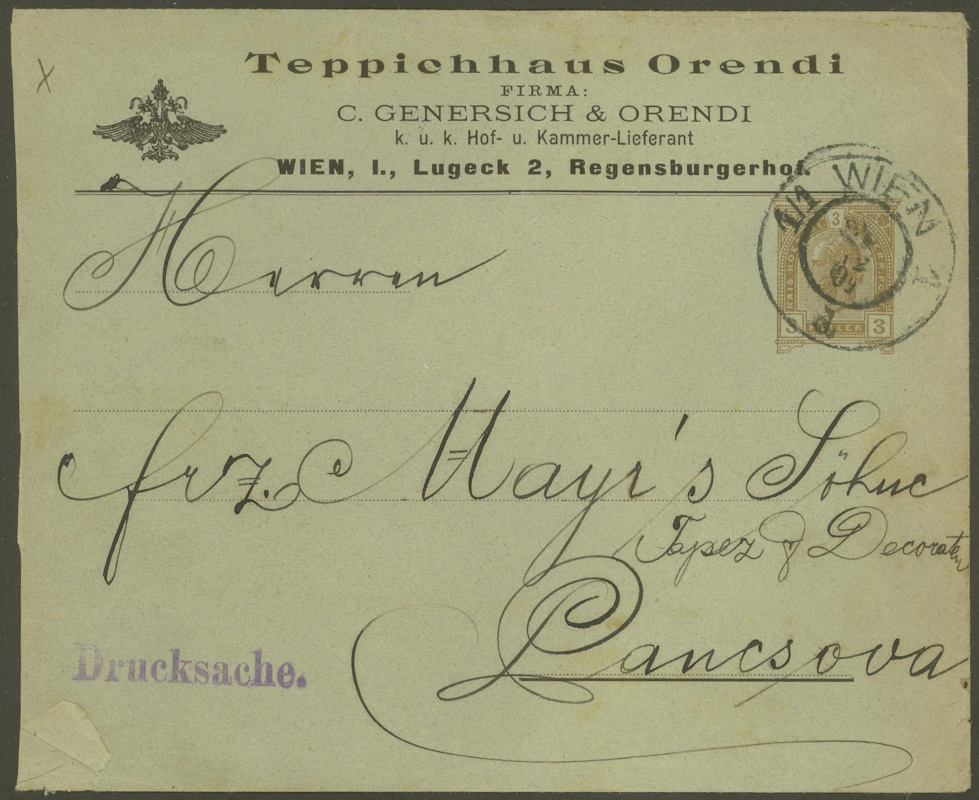 Teppichhaus Orendi
FIRMA:
C. GENERSICH & ORENDI
k. u. k. Hof- u. Kammer-Lieferant
WIEN, I., Lugeck 2, Regensburgerhof.
1/1 WIEN 1
3
3 HELLER 3
Herren
frz. Mayr's Söhne
Tapez & Decorat
Pancsova
Drucksache.